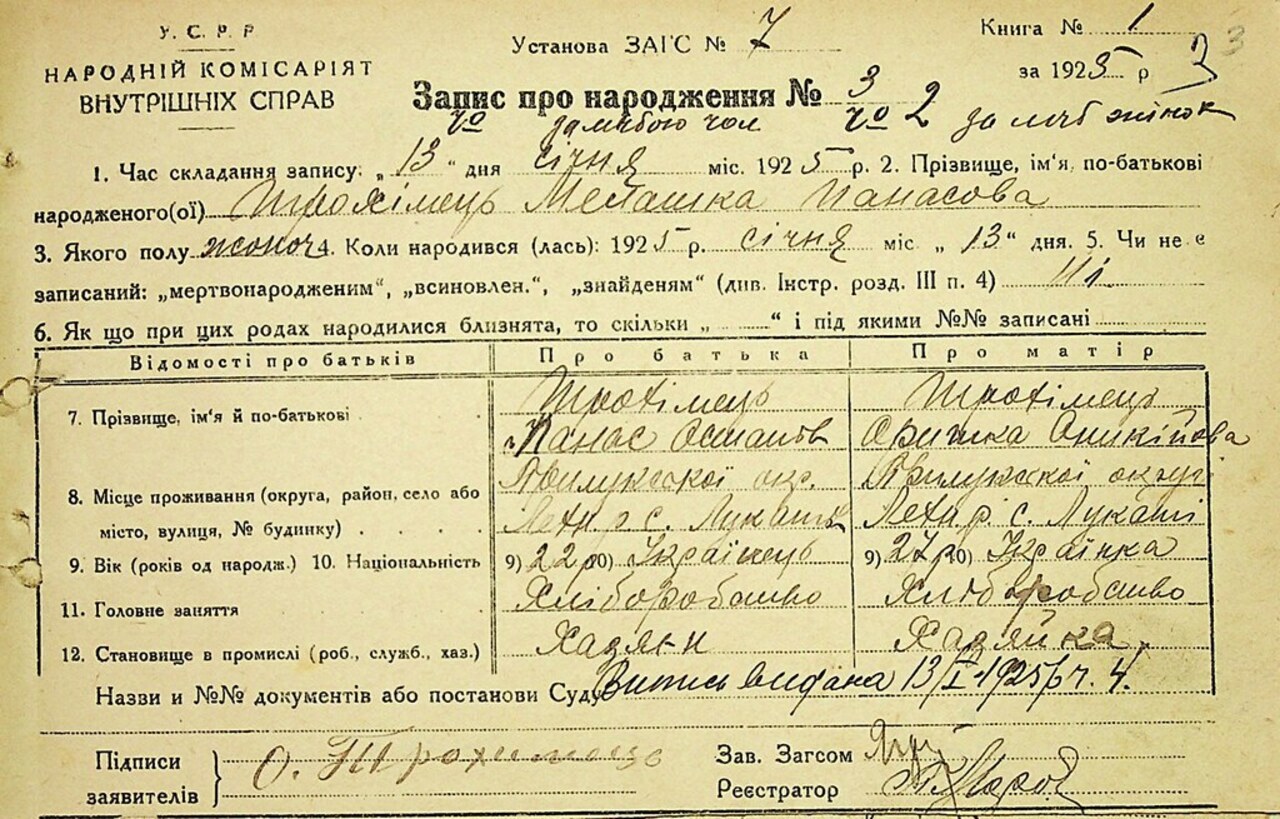 У. С. Р. Р
НАРОДНІЙ КОМІСАРІЯТ
ВНУТРІШНІХ СПРАВ
Установа ЗАГС № 7
Книга № 1
за 1925 р
3
3
Запис про народження № 3
чо за мѣбою чол чо 2 за мѣб жінок
1. Час складання запису: „13“ дня січня міс. 1925 р. 2. Прізвище, ім'я, по-батькові
народженого(ої) Трохімець Мелашка Панасова
3. Якого полу жоноч 4. Коли народився (лась): 1925 р. січня міс „13“ дня. 5. Чи не є
записаний: „мертвонародженим“, „всиновлен.“, „знайденям“ (див. Інстр. розд. III п. 4) Ні.
6. Як що при цих родах народилися близнята, то скільки „ “ і під якими №№ записані
Відомості про батьків Про батька Про матір
7. Прізвище, ім'я й по-батькові Трохімець Трохімець
Панас Остапов Оришка Оникійова
8. Місце проживання (округа, район, село або Прилукської окр. Прилукської округ
місто, вулиця, № будинку) с. с.
9. Вік (років од народж.) 10. Національність 9) 22 р 10) Українець 9) 27 р 10) Українка
11. Головне заняття Хліборобство Хлюборобство
12. Становище в промислі (роб., служб., хаз.) Хадяін Хадяйка.
Назви и №№ документів або постанови Суду Випись видана 13/I 1925 р ч. 4.
Підписи
заявителів
О. Трохимець
Зав. Загсом
Реєстратор